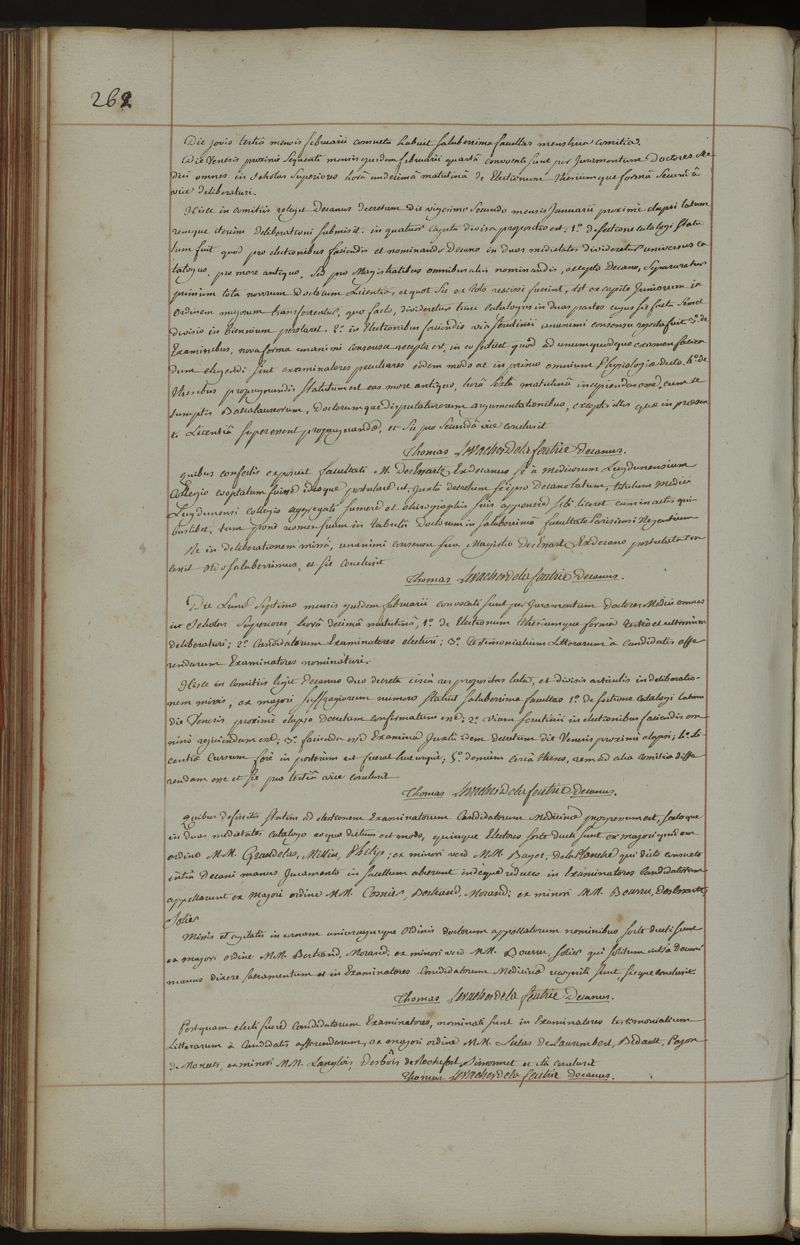 262
Die jovis tertiâ mensis februarii consueta habuit saluberrima facultas menstrua comitia.
Die Veneris proximè sequenti mensis ejusdem februarii quartâ convocati sunt per Juramentum Doctores Me
dici omnes in scholas superiores horâ undecimâ matutinâ de Electionum thesiumque formâ secundâ
vice deliberaturi.
Hisce in comitiis relegit Decanus decretum die vigesimo secundo mensis Januarii proximè elapsi latum
remque iterùm deliberationi submisit. in quatuor capita divisa propositio est; 1°. de sectione catalogi statu
tum fuit quod pro electionibus faciendis et nominando Decano in duas medietates divideretur universus ca
talogus, pro more antiquo, sed pro Magistratibus omnibus aliis nominandis, excepto Decano, separaretur
primùm tota novorum Doctorum Licentia, et quot sic ex toto rescissi fuerint, tot ex capite Juniorum in
ordinem majorum transferrentur, quo facto, divideretur tunc catalogus in duas partes cujus sic facta semel
divisio in biennium perstaret. 2°. in Electionibus faciendis via scrutinii unanimi consensu rejecta fuit. 3°. de
Examinibus, nova forma unanimi consensu recepta est, in eo scilicet quod ad unumquodque examen facien
dum eligendi sint examinatores peculiares eodem modo ac in primo omnium Physiologico dicto. 4°. de
thesibus propugnandis statutum est eas more antiquo, horâ sextâ matutinâ incipiendas esse, cum re
sumptis Baccalaureorum, Doctorumque disputaturorum argumentationibus, exceptis illis quae in praesen
ti Licentiâ superessent propugnandae, et sic pro secundâ vice conclusit
Thomas Levacher de la feutrie Decanus.
quibus confectis exposuit facultati M. Desessartz Exdecanus se à medicorum Lugdunensium
Collegio cooptatum fuisse ideoque postulare ut, juxtà decretum se ipso decano latum, titulum medici
Lugdunensi collegio aggregati sumere et chirographis suis apponere sibi liceret cum in actis qui-
buslibet, tum ponè nomen suum in tabulâ Doctorum in saluberrimâ facultate Parisiensi Regentium
Re in deliberationem missâ, unanimi consensu suo Magistro Desessartz Exdecano postulata con
cessit ordo saluberrimus, et sic conclusit
Thomas Levacher de la feutrie Decanus.
Die Lunae septimo mensis ejusdem februarii convocati sunt per Juramentum Doctores Medici omnes
in scholas superiores, horâ decimâ matutinâ, 1°. de Electionum thesiumque formâ tertiò et ultimùm
deliberaturi; 2°. Candidatorum Examinatores electuri; 3°. testimonialium Litterarum à candidatis affe
rendarum Examinatores nominaturi.
Hisce in comitiis legit Decanus duo decreta circà res propositas lata, et divisis articulis in deliberatio-
nem missis, ex majori suffragiorum numero statuit saluberrima facultas 1°. de sectione catalogi latum
die Veneris proximè elapso decretum confirmatum esse; 2°. viam scrutinii in electionibus faciendis om
ninò rejiciendam esse; 3°. facienda esse Examina juxtà idem decretum die Veneris proximè elapsi; 4°. Li
centiae cursum fore in posterum ut fuerat hucusque; 5°. demùm circà theses, rem ad alia comitia diffe
rendam esse et sic pro tertiâ vice conclusit
Thomas Levacher de la feutrie Decanus.
Quibus dissertis statim ad electionem Examinatorum Candidatorum Medicinae progressum est, sectoque
in duas medietates catalogo eo quo dictum est modo, quinque Electores sorte ducti sunt ex majori quidem
ordine M.M. Geaudelus, Millin, Philip; ex minori verò M.M. Bayer, de la Planche qui dicto consueto
intrà Decani manus Juramento in sacellum abierunt indeque reduces in Examinatores Candidatorum
appellarunt ex majori ordine M.M. Cosnier, Bertrand, Morand; ex minori M.M. Bourru, Desessartz
Solier
Missis et agitatis in urnam uniuscujusque ordinis doctorum appellatorum nominibus sorte ducti sunt
ex majori ordine M.M. Bertrand, Morand; ex minori verò M.M. Bourru, Solier qui solitum intrà Decani
manus dixere sacramentum et in Examinatores Candidatorum Medicinae recogniti sunt, sicque conclusit.
Thomas Levacher de la feutrie Decanus.
Postquam electi fuere candidatorum Examinatores, nominati sunt in Examinatores testimonialium
Litterarum à candidatis afferendarum, ex majori ordine M.M. Lutas de Laurembert, Bidault, Pajon
de Moncets, ex minori M.M. Langlois, Desbois de Rochefort, Simonnet et ità conclusit
Thomas Levacher de la feutrie Decanus.